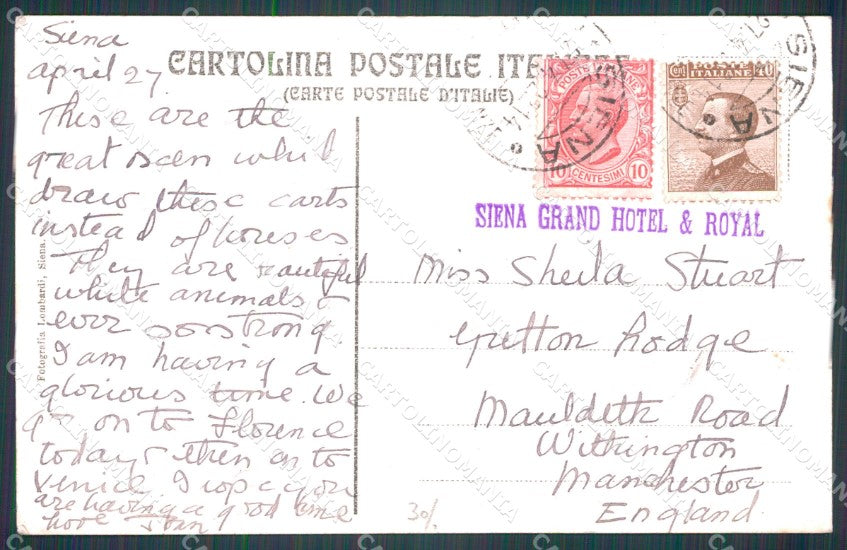 Siena
april 27.
CARTOLINA POSTALE ITALIANA
(CARTE POSTALE D'ITALIE)
These are the
great oxen which
draw these carts
instead of horses
They are beautiful
white animals &
ever so strong.
I am having a
glorious time. We
go on to Florence
today & then on to
Venice I hope you
are having a good time
love Joan
Fotografia Lombardi, Siena.
POSTE ITALIANE
10 CENTESIMI 10
ITALIANE
SIENA
SIENA
SIENA GRAND HOTEL & ROYAL
Miss Sheila Stuart
Lodge
Mauldeth Road
Withington
Manchester
England
30/.
CARTOLINOMANIA